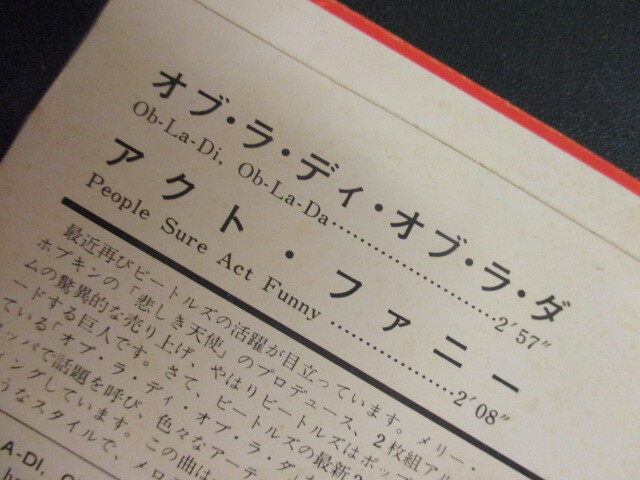 オブ・ラ・ディ・オブ・ラ・ダ
Ob-La-Di, Ob-La-Da..............................2′57″
アクト・ファニー
People Sure Act Funny ....................2′08″
最近再びビートルズの活躍が目立っています。メリー・
ホプキンの「悲しき天使」のプロデュース、2枚組アル
ムの驚異的な売り上げ、やはりビートルズはポップ
ードする巨人です。さて、ビートルズの最新2
ている「オブ・ラ・ディ・オブ・ラ・ダ
ッパで話題を呼び、色々なアーテ
ィングしています。この曲は
うなスタイルで、メロデ
A-DI, O